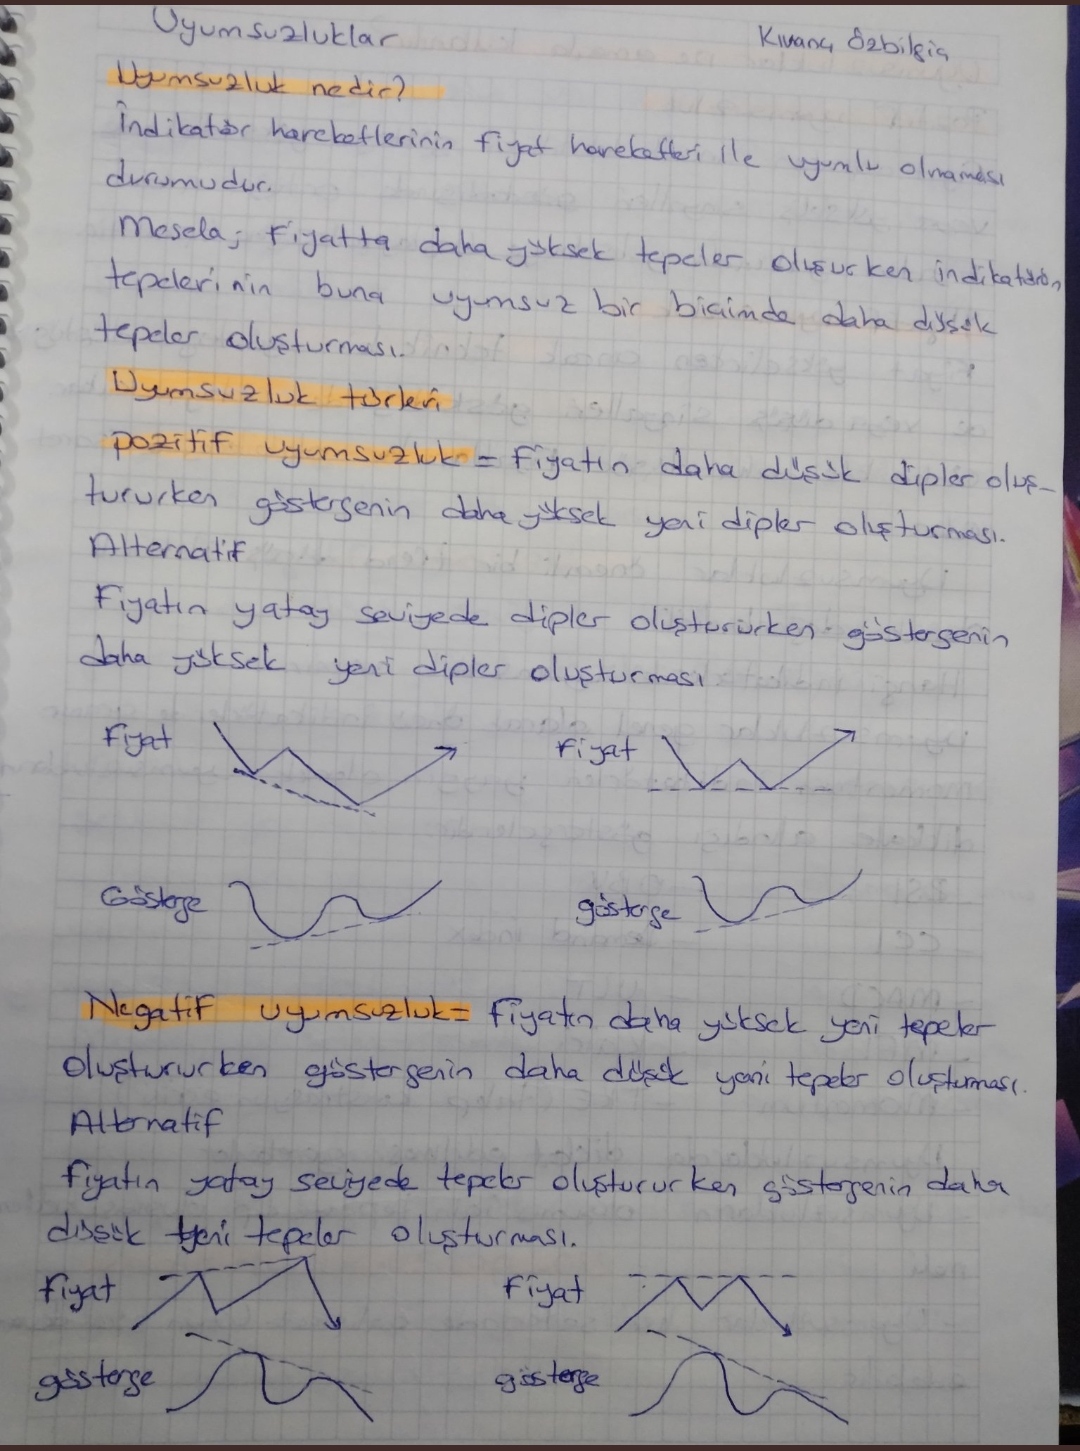 Uyumsuzluklar
Kıvanç Özbilgiç
Uyumsuzluk nedir?
İndikatör hareketlerinin fiyat hareketleri ile uyumlu olmaması
durumudur.
Mesela; Fiyatta daha yüksek tepeler oluşurken indikatörün
tepelerinin buna uyumsuz bir biçimde daha düşük
tepeler oluşturması.
Uyumsuzluk türleri
pozitif uyumsuzluk = Fiyatın daha düşük dipler oluş-
tururken göstergenin daha yüksek yeni dipler oluşturması.
Alternatif
Fiyatın yatay seviyede dipler oluştururken göstergenin
daha yüksek yeni dipler oluşturması
Fiyat
Fiyat
Gösterge
gösterge
Negatif uyumsuzluk = fiyatın daha yüksek yeni tepeler
oluştururken göstergenin daha düşük yeni tepeler oluşturması.
Alternatif
fiyatın yatay seviyede tepeler oluştururken göstergenin daha
düşük yeni tepeler oluşturması.
fiyat
fiyat
gösterge
gösterge